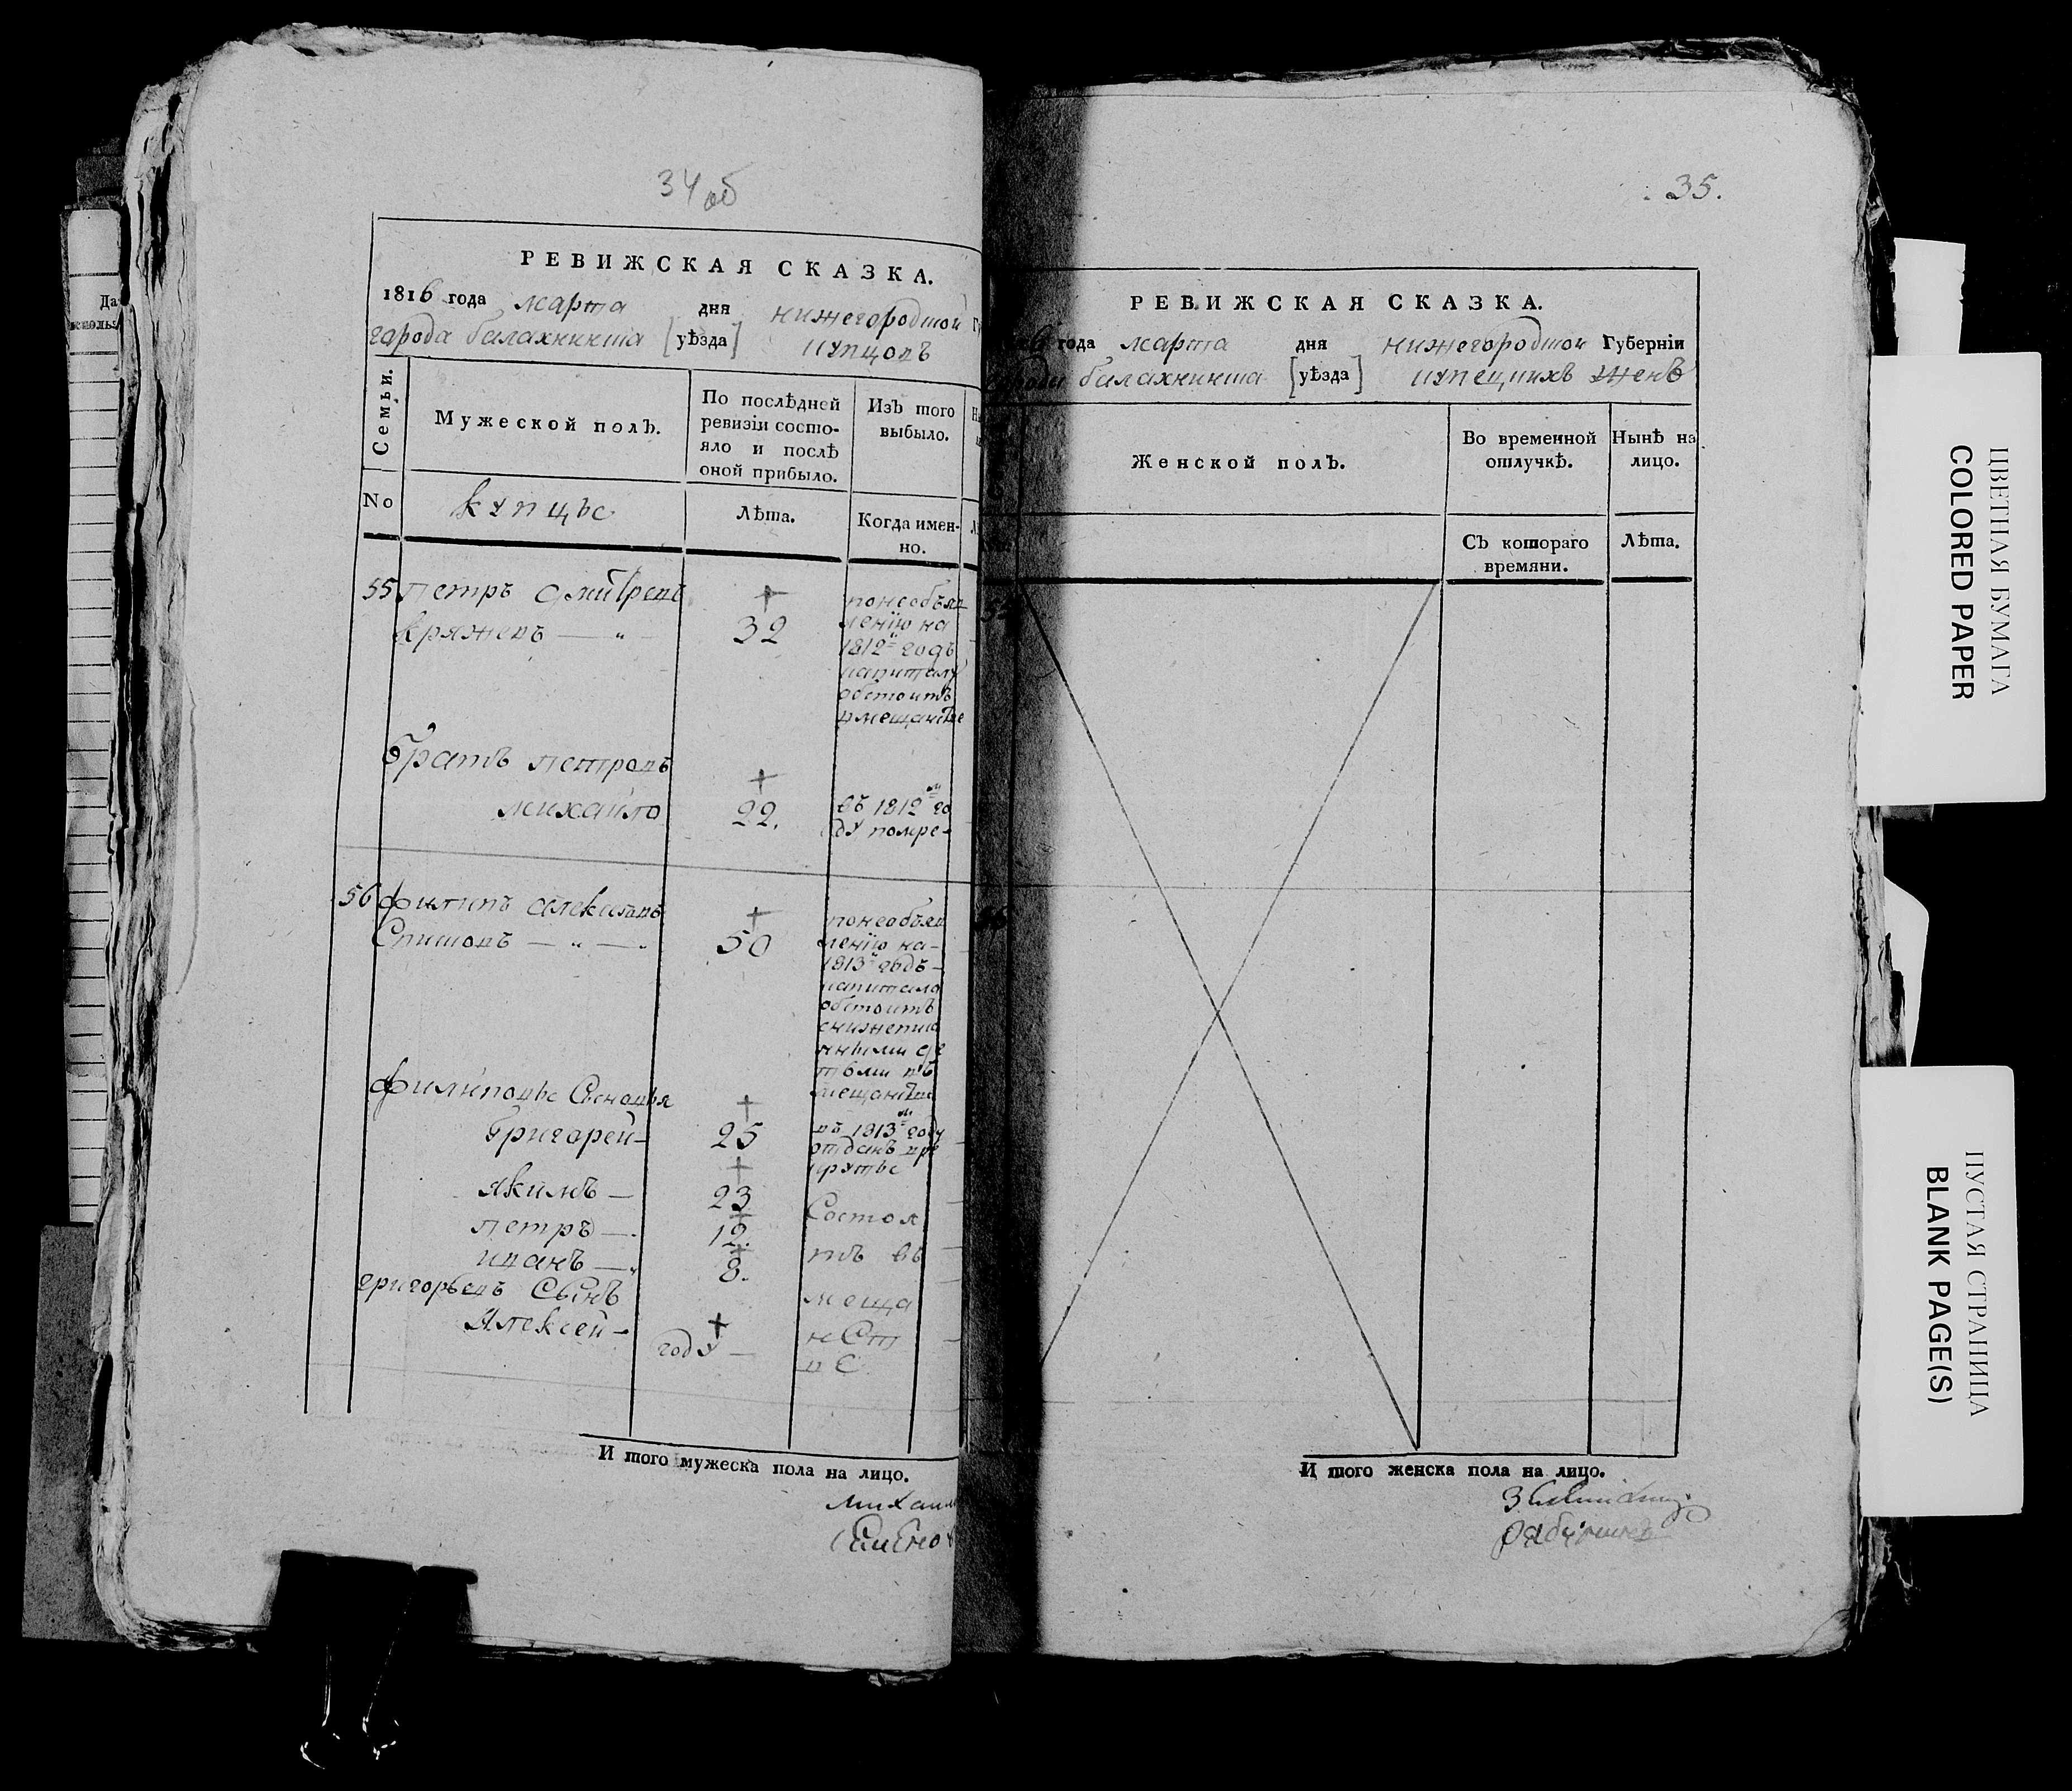 34 об
РЕВИЖСКАЯ СКАЗКА.
1816 года марта дня нижегородской
города балахнинска [уѣзда] купцовъ
Семьи.
Мужеской полъ.
По послѣдней ревизіи состояло и послѣ оной прибыло.
Изъ того выбыло.
No
купцы
Лѣта.
Когда именно.
55 петръ дмитревъ
кряжевъ — „ —
32
понеобъяв
лению на
1812й годъ
капиталу
обстоитъ
вмещанстве
братъ петровъ
михайло
22.
въ 1812м го
ду помре
56 филипъ алексеевъ
50
понеобъяв
лению на
1813й годъ
капитала
обстоитъ
снижеписа
нными де
тьми въ
мещанстве
филиповы Сыновья
григорей
25
въ 1813м году
отданъ вре
круты
якимъ —
23
Состоя
петръ —
12.
тъ въ
иванъ —
8.
меща
григорьевъ Сынъ
Алексей —
году —
нСт
вС
И того мужеска пола на лицо.
35.
РЕВИЖСКАЯ СКАЗКА.
года марта дня нижегородской Губерніи
города балахнинска [уѣзда] купецкихъ женъ
Женской полъ.
Во временной отлучкѣ.
Нынѣ на лицо.
Съ котораго времяни.
Лѣта.
И того женска пола на лицо.
ЦВЕТНАЯ БУМАГА
COLORED PAPER
ПУСТАЯ СТРАНИЦА
BLANK PAGE(S)